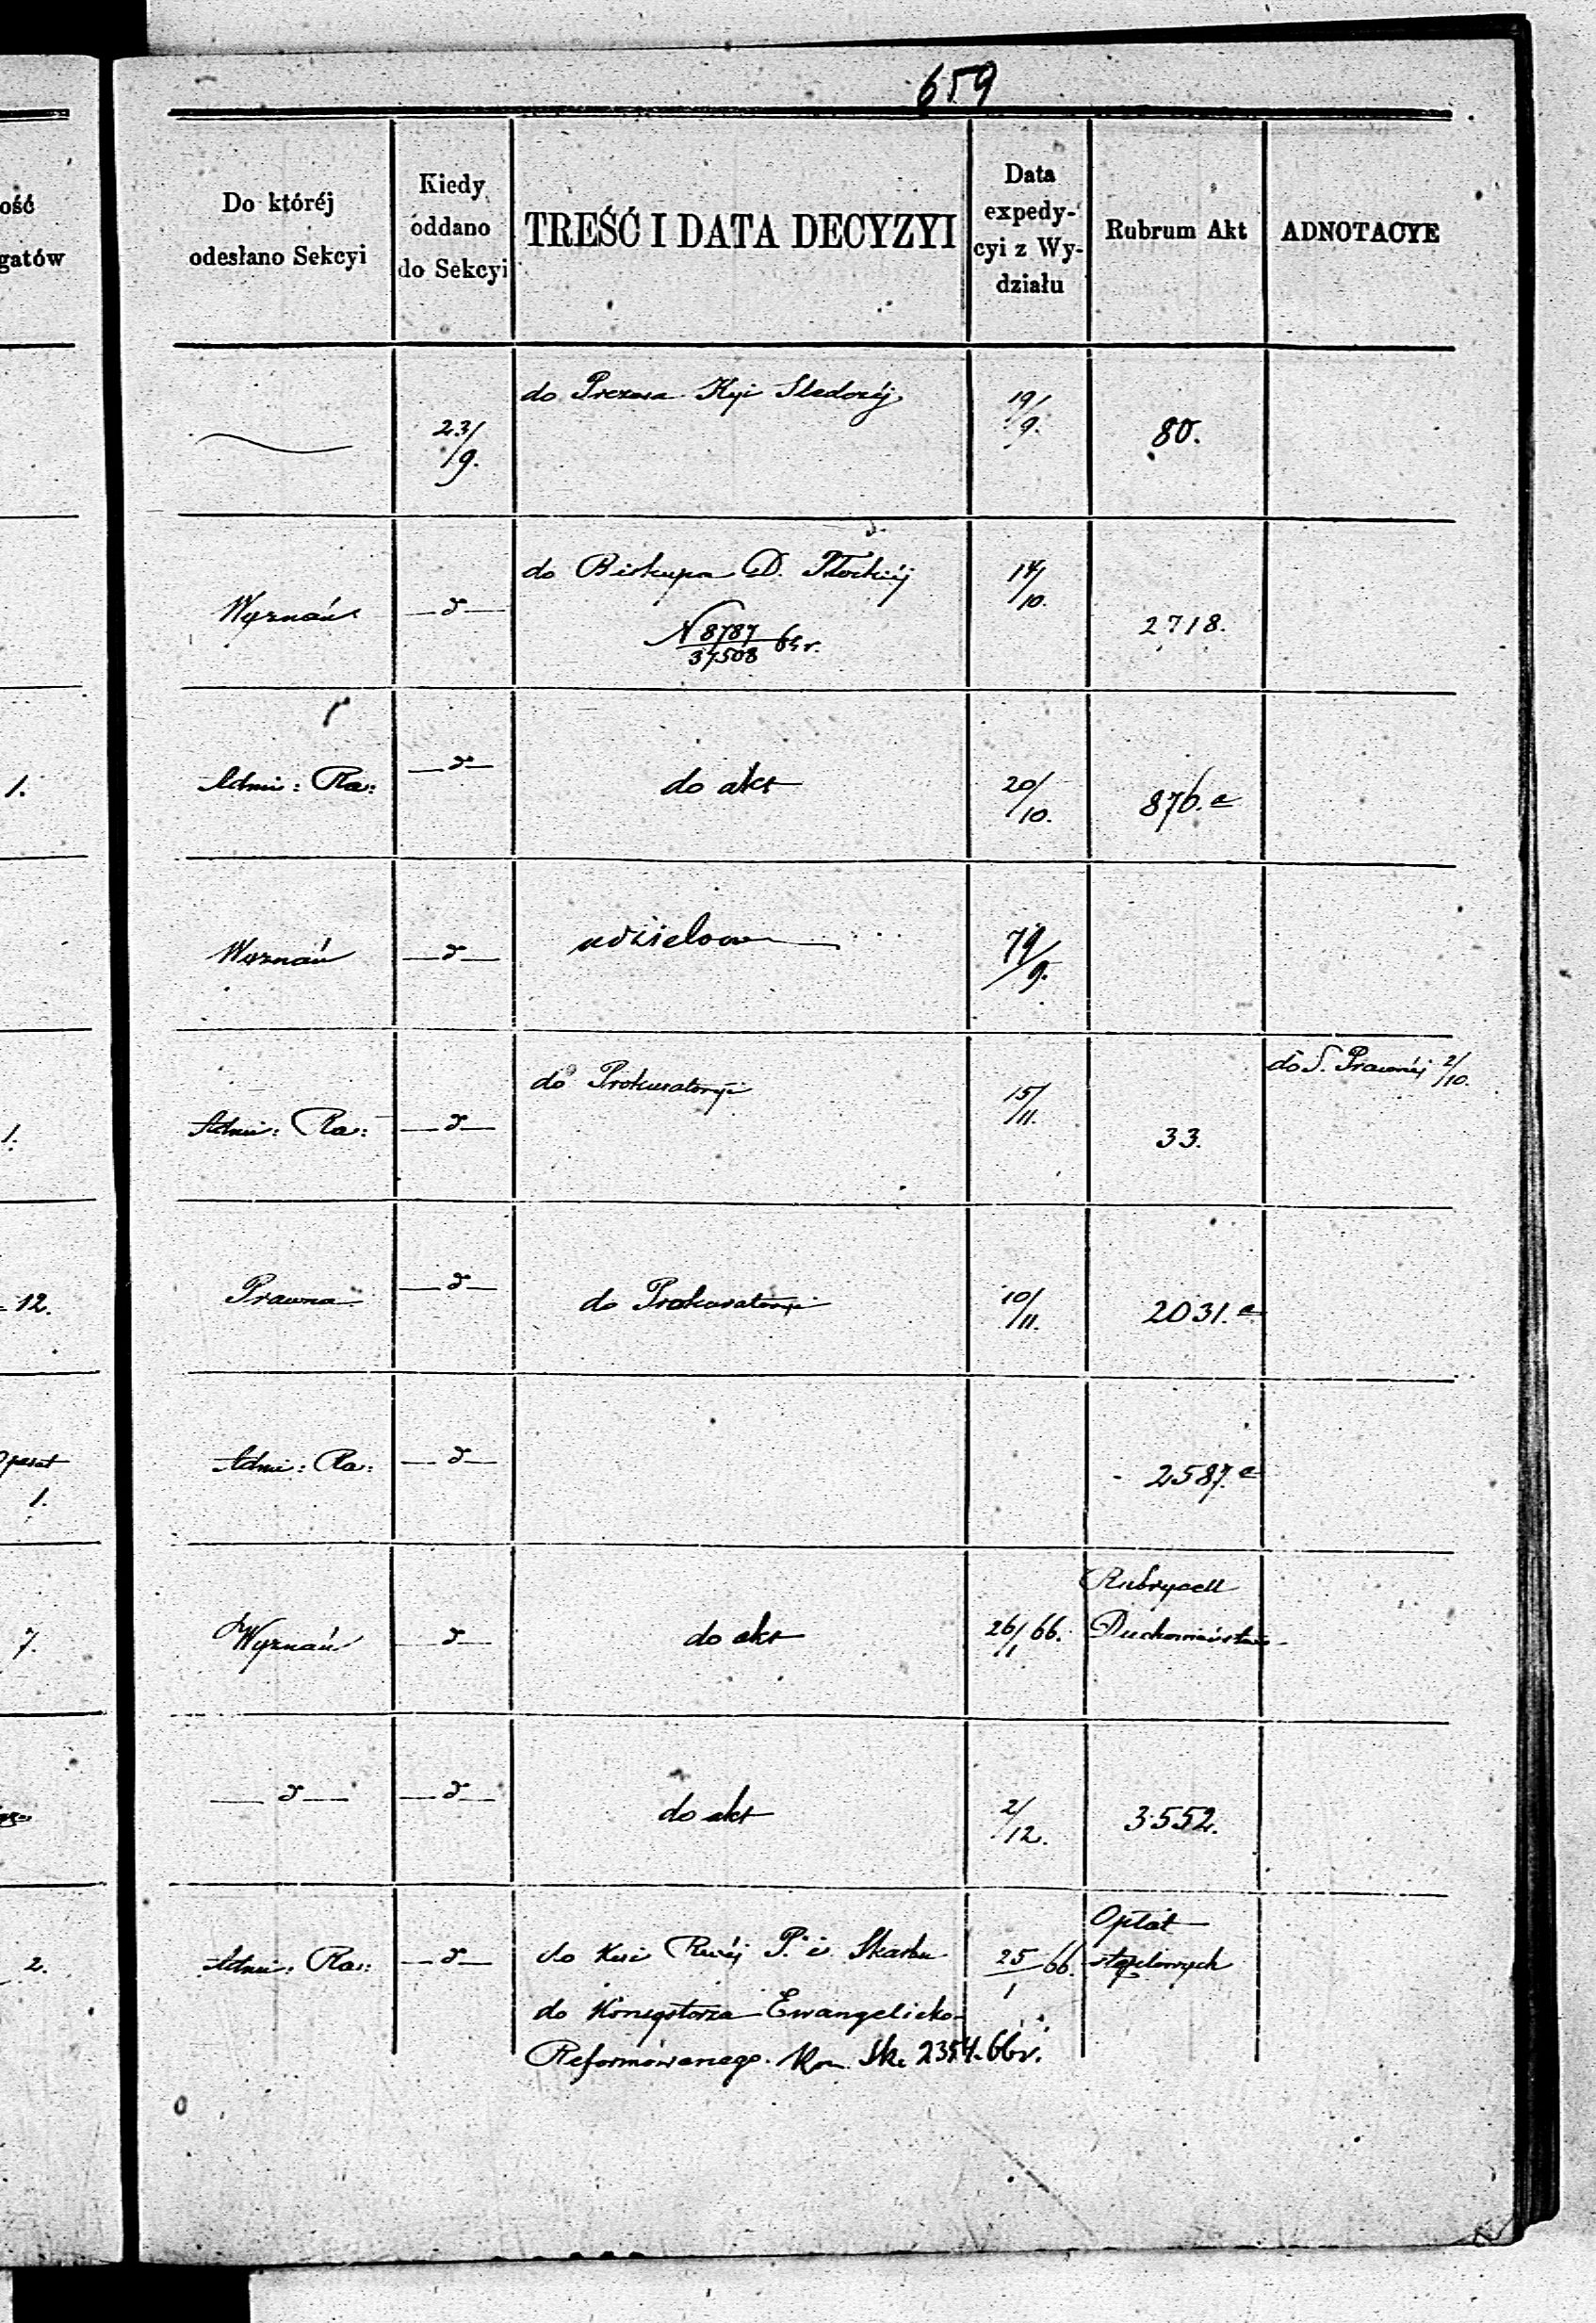 659
ość
gatów
Do któréj
odesłano Sekcyi
Kiedy
oddano
do Sekcyi
TREŚĆ I DATA DECYZYI
Data
expedy-
cyi z Wy-
działu
Rubrum Akt
ADNOTACYE
23/9.
do Prezesa Kyi Sledczéj
19/9.
80.
Wyznań
—d—
do Biskupa D. Płockiéj
N 8787/37508 65 r.
14/10.
2718.
1.
Admi: Ra:
—d—
do akt
20/10.
876. a
Wyznań
—d—
udzielono
19/9.
1.
Admi: Ra:
—d—
do Prokuratoryi
15/11.
33.
do S. Prawnéj 2/10.
12.
Prawna
—d—
do Prokuratoryi
10/11.
2031. a
1.
Admi: Ra:
—d—
2587. a
7.
Wyznań
—d—
do akt
26/1 66.
Rubrycell
Duchowieństwa
—d—
—d—
do akt
2/12.
3552.
2.
Admi: Ra:
—d—
do Ksii Rwéj P. i Skarbu
do Konsystorza Ewangelicko-
Reformowanego. Kom. Sk. 2354. 66 r.
25/1 66.
Opłat
stęplowych